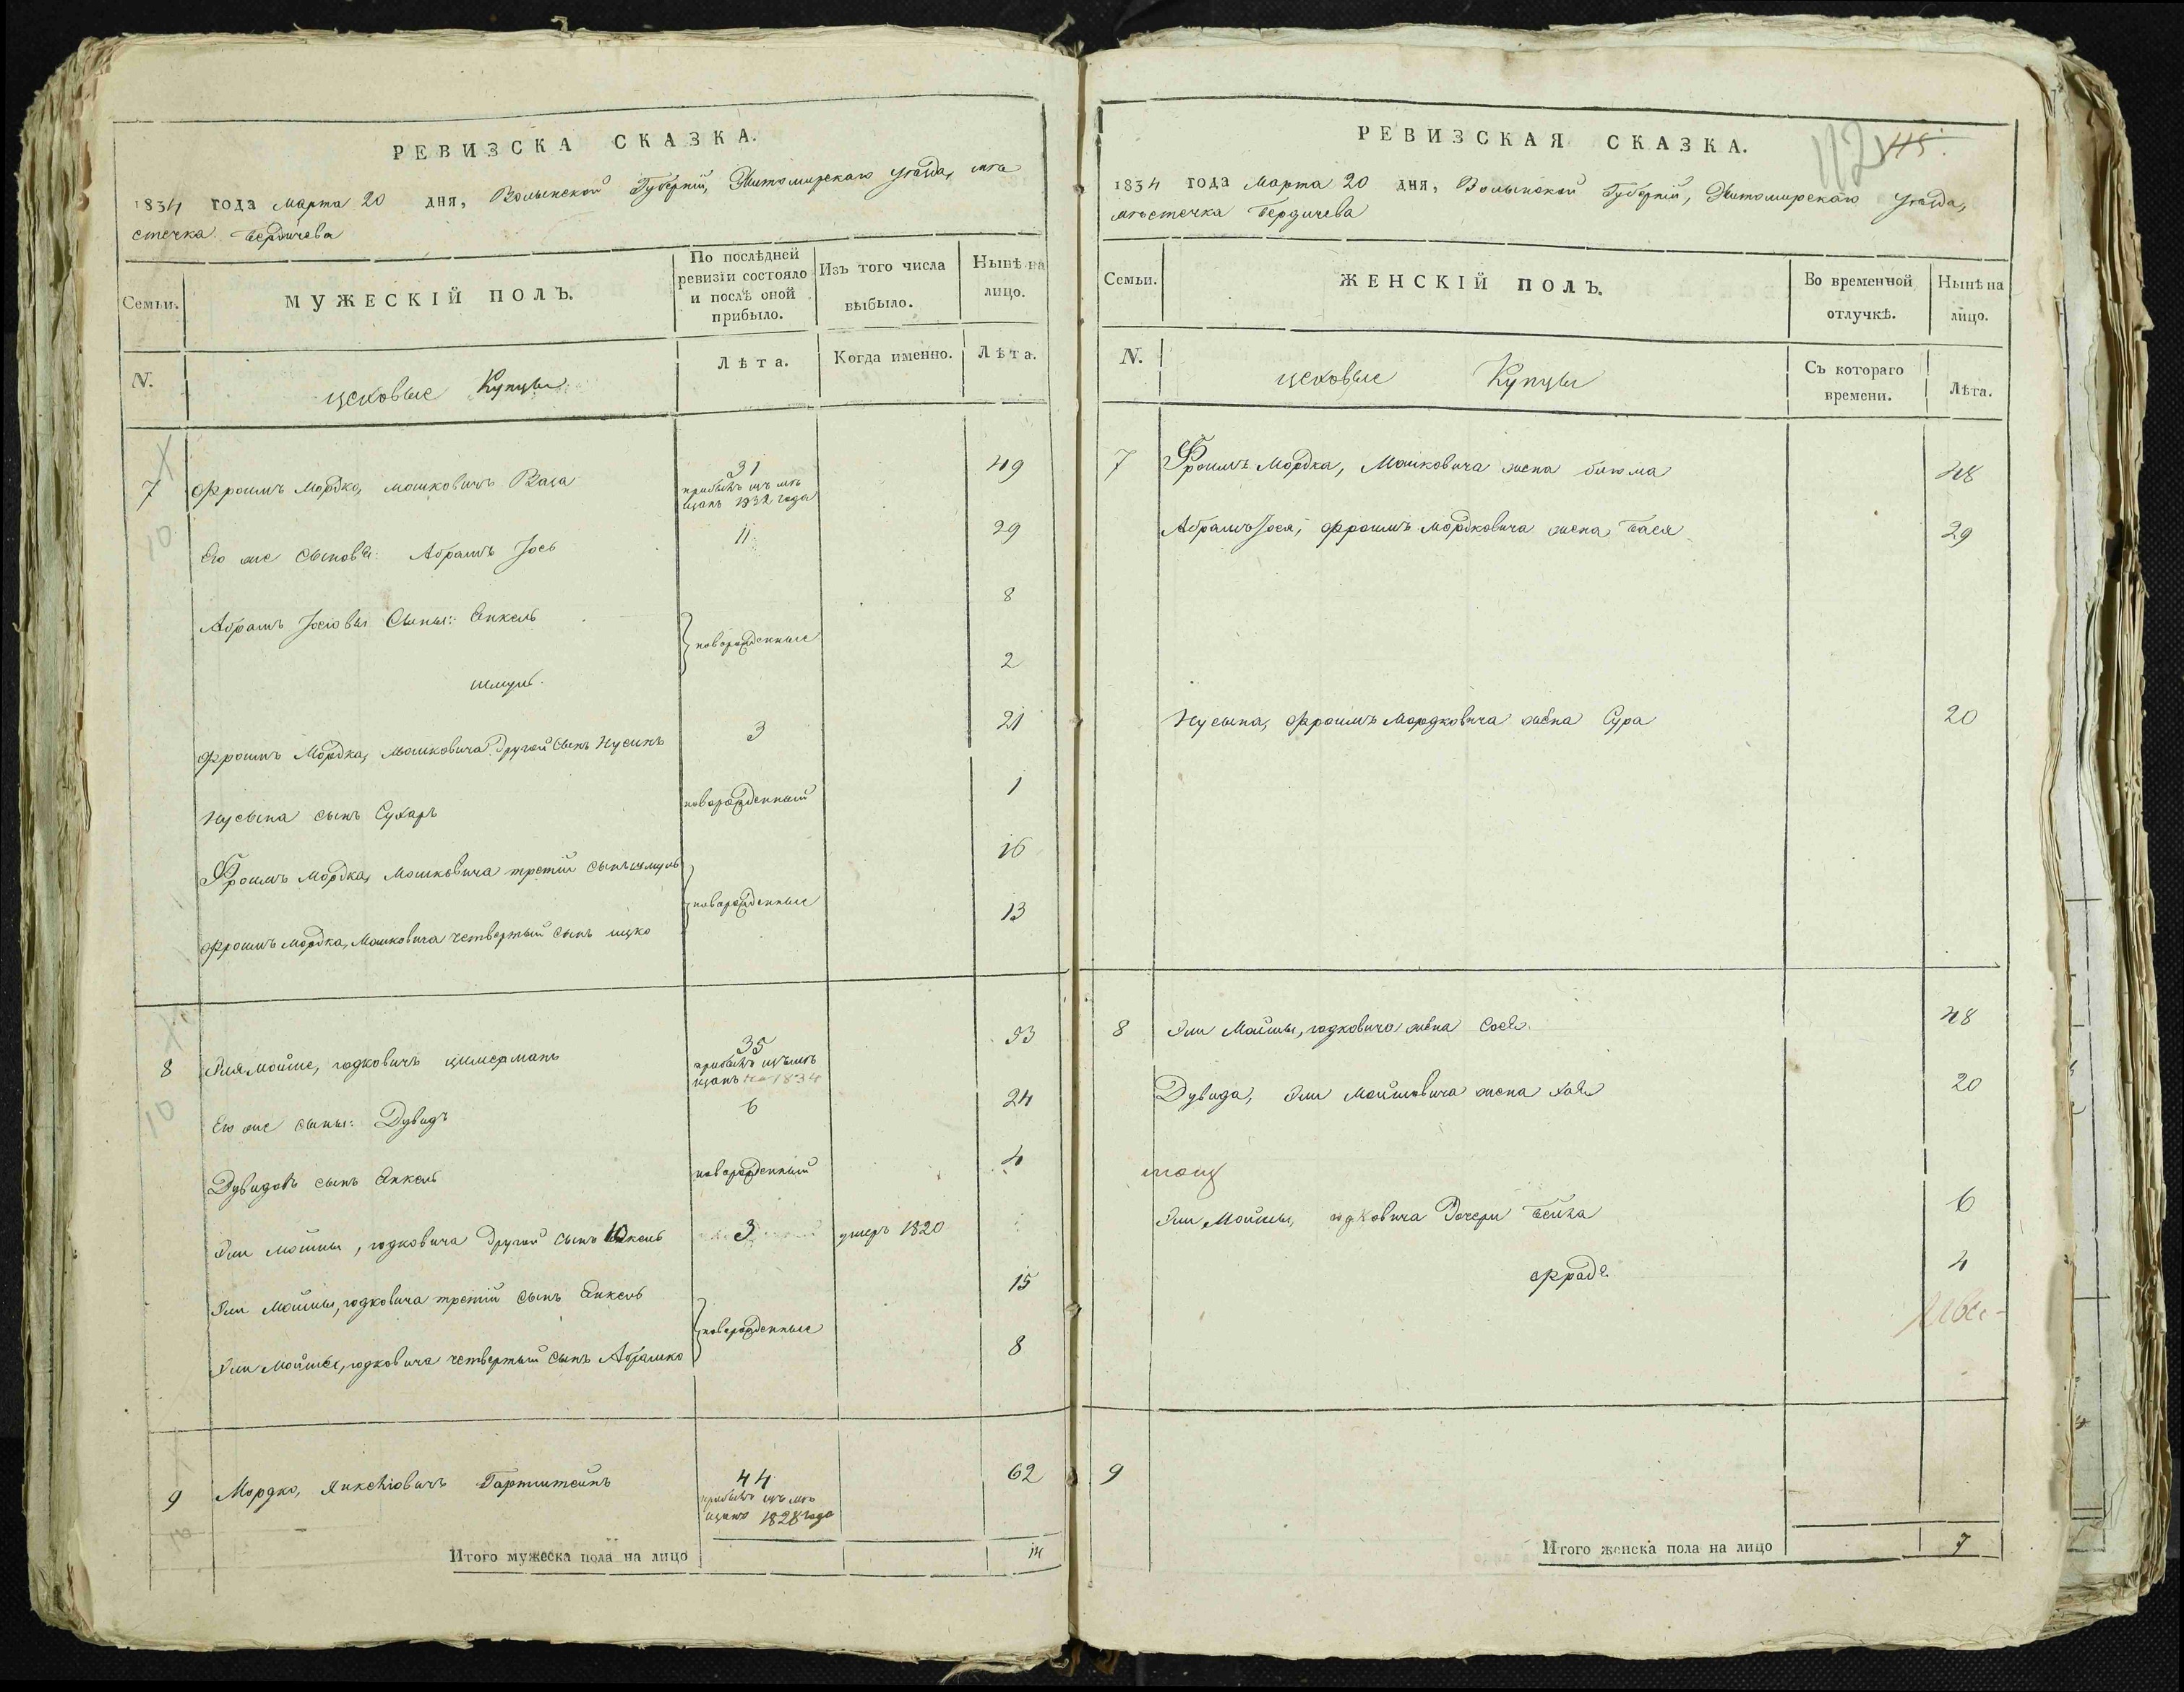 РЕВИЗСКА СКАЗКА.
1834 года Марта 20 дня, Волынской Губерніи, Житомирскаго уѣзда, мѣ
стечка Бердичева
Семьи.
МУЖЕСКІЙ ПОЛЪ.
По послѣдней ревизіи состояло и послѣ оной прибыло.
Изъ того числа выбыло.
Нынѣ на лицо.
N.
цеховые Купцы
Лѣта.
Когда именно.
Лѣта.
7 Фроимъ Мордко, Мошковичъ Ваза 31 49
прибылъ изъ мѣ
щанъ 1832 года
10
Его же Сыновья: Абрамъ Іось 11 29
Абрамъ Іосіовы Сыны: Янкель 8
новорожденные
Шмуль 2
Фроимъ Мордка, Мошковича другой Сынъ Нусинъ 3 21
Нусына сынъ Сухаръ новорожденный 1
Фроимъ Мордка, Мошковича третій Сынъ Шмуль 16
новорожденные
Фроимъ Мордка, Мошковича четвертый Сынъ Ицко 13
8 Эля Мойше, юдковичъ цимерманъ 35 53
прибылъ изъ мѣ
щанъ 1834
10
Его же сыны: Дувидъ 6 24
Дувидовъ сынъ Янкель новорожденный 4
Эли Мойшы, юдковича другой Сынъ 3 умеръ 1820
Эли Мойшы, юдковича третій Сынъ Янкель 15
новорожденные
Эли Мойшы, юдковича четвертый Сынъ Абрамко 8
9 Мордко, Янкеліовичъ Гартштейнъ 44 62
прибылъ изъ мѣ
щанъ 1828 года
Итого мужеска пола на лицо 14
РЕВИЗСКАЯ СКАЗКА.
112
115.
1834 года Марта 20 дня, Волынской Губерніи, Житомирскаго уѣзда,
мѣстечка Бердичева
Семьи.
ЖЕНСКІЙ ПОЛЪ.
Во временной отлучкѣ.
Нынѣ на лицо.
N.
цеховые Купцы
Съ котораго времени.
Лѣта.
7 Фроимъ Мордка, Мошковича жена Блюма 48
Абрамъ Іося, Фроимъ Мордковича жена Бася 29
Нусына, Фроимъ Мордковича жена Сура 20
8 Эли Мойшы, юдковича жена Сося 48
Дувида, Эли Мойшовича жена Хая 20
Эли Мойшы, юдковича Дочери Бейла 6
Фрада 4
9
Итого женска пола на лицо 7